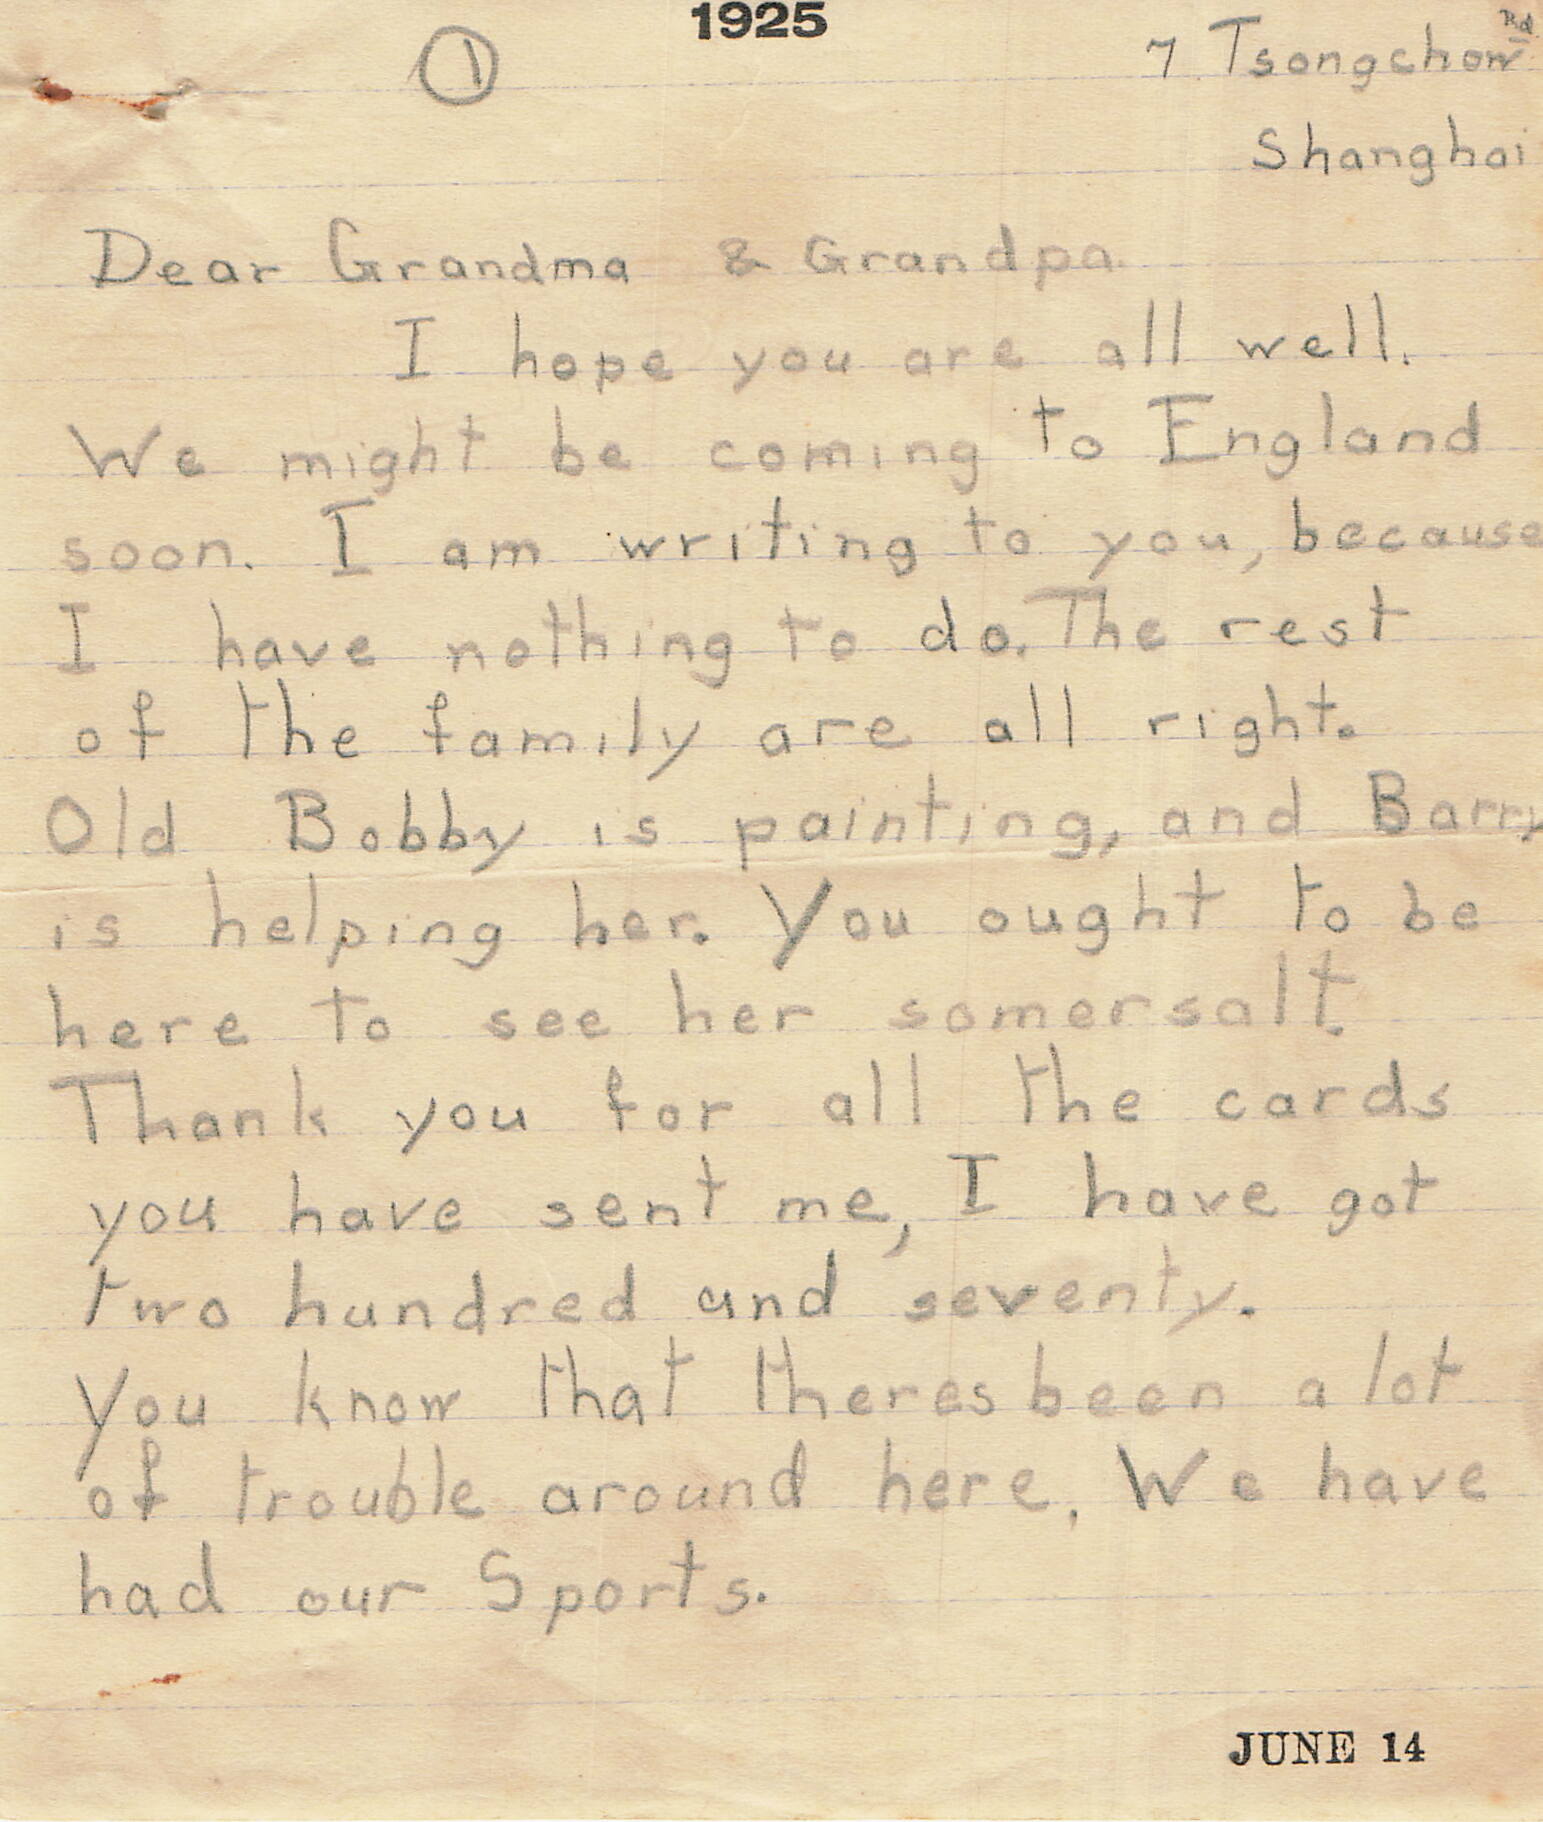 1925
① 7 Tsongchow Rd
Shanghai
Dear Grandma & Grandpa.
I hope you are all well.
We might be coming to England
soon. I am writing to you, because
I have nothing to do. The rest
of the family are all right.
Old Bobby is painting, and Barry
is helping her. You ought to be
here to see her somersalt.
Thank you for all the cards
you have sent me, I have got
two hundred and seventy.
You know that theres been a lot
of trouble around here. We have
had our Sports.
JUNE 14